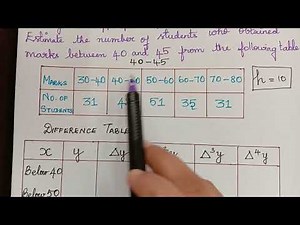 Estimate the number of students who obtained
marks between 40 and 45 from the following table
40-45
MARKS 30-40 40-50 50-60 60-70 70-80
h = 10
NO. OF STUDENTS 31 4 51 35 31
DIFFERENCE TABLE
x y Δy Δ³y Δ⁴y
Below 40
Below 50